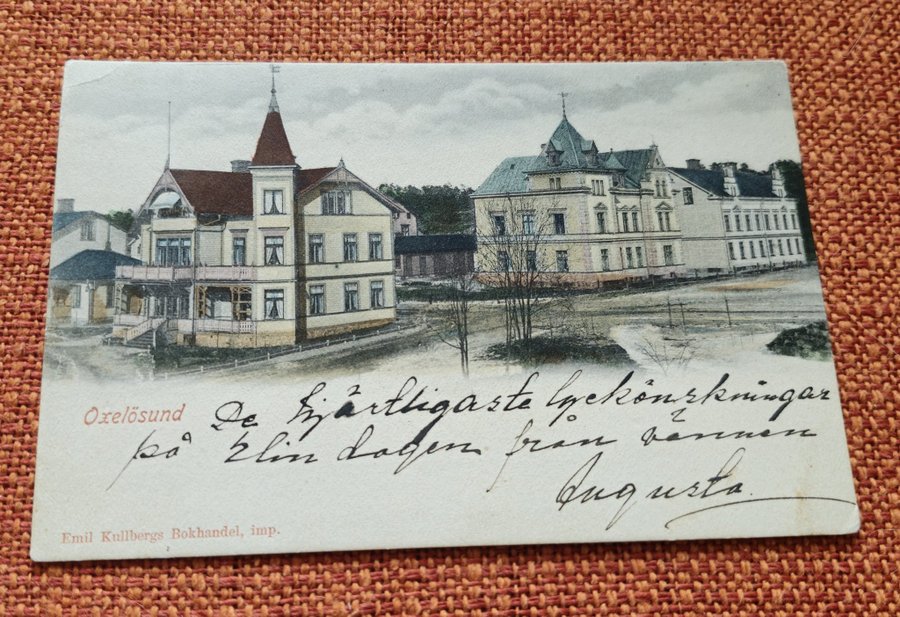 Oxelösund
De hjärtligaste lyckönskningar
på Elin dagen från vännen
Augusta
Emil Kullbergs Bokhandel, imp.